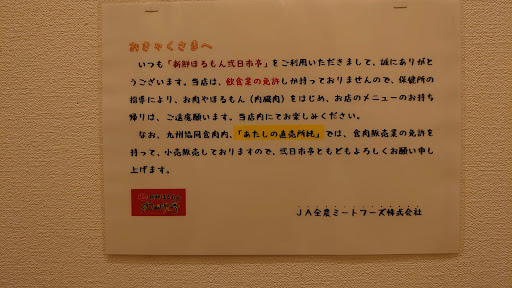 おきゃくさまへ
いつも「新鮮ほるもん弐日市亭」をご利用いただきまして、誠にありがと
うございます。当店は、飲食業の免許しか持っておりませんので、保健所の
指導により、お肉やほるもん（内臓肉）をはじめ、お店のメニューのお持ち
帰りは、ご遠慮願います。当店内にてお楽しみください。
なお、九州協同食肉内、「あたしの直売所純」では、食肉販売業の免許を
持って、小売販売しておりますので、弐日市亭ともどもよろしくお願い申し
上げます。
JA全農ミートフーズ株式会社